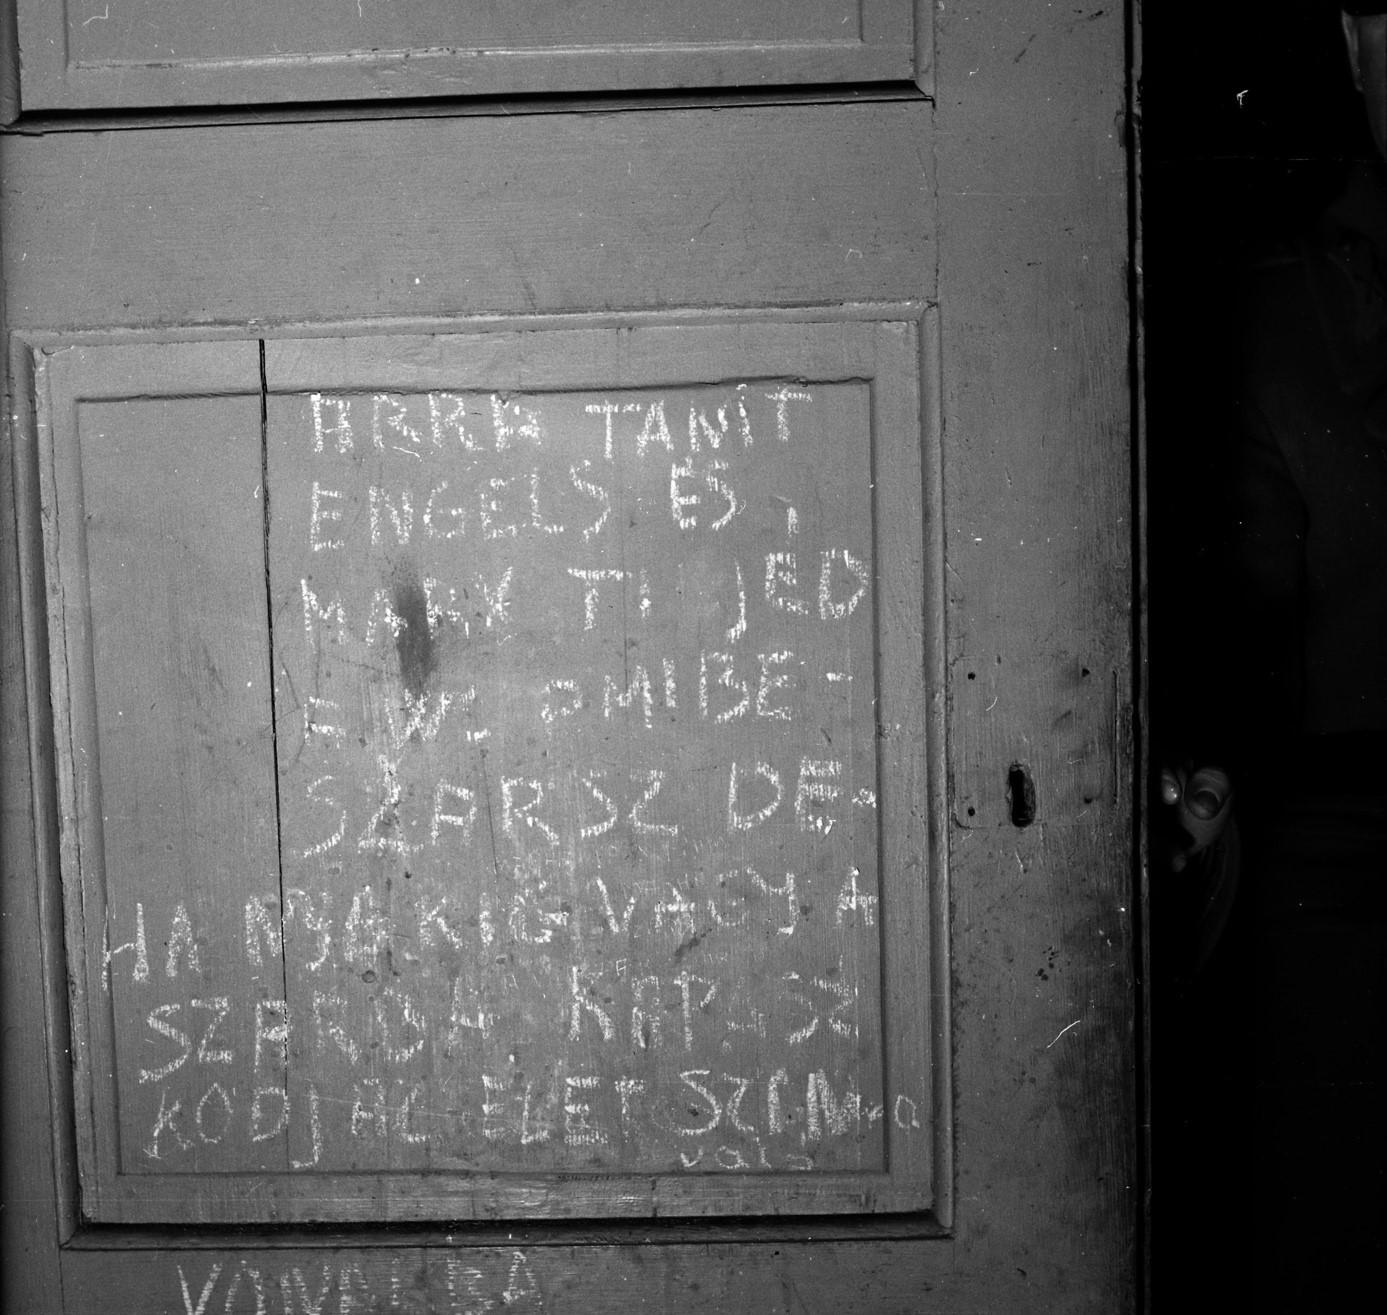 ARRA TANIT
ENGELS ÉS
MARX TIJED
E WC MIBE-
SZARSZ DE-
HA NYAKIG VAGY A
SZARBA KAPASZ
KODJ AZ ELET SZIN
VONALBA